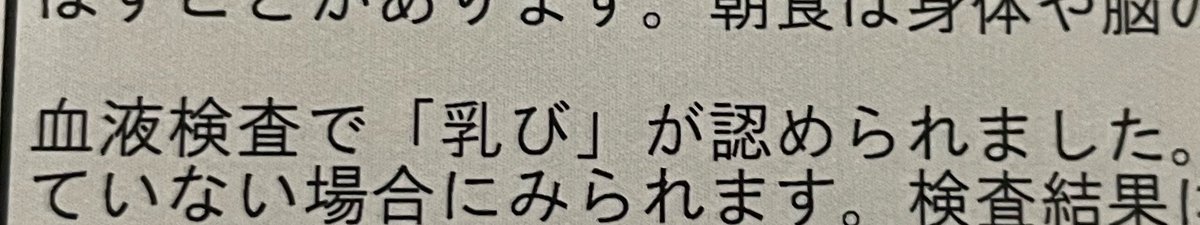 はすことがあります。朝食は身体や脳の
血液検査で「乳び」が認められました。
ていない場合にみられます。検査結果は